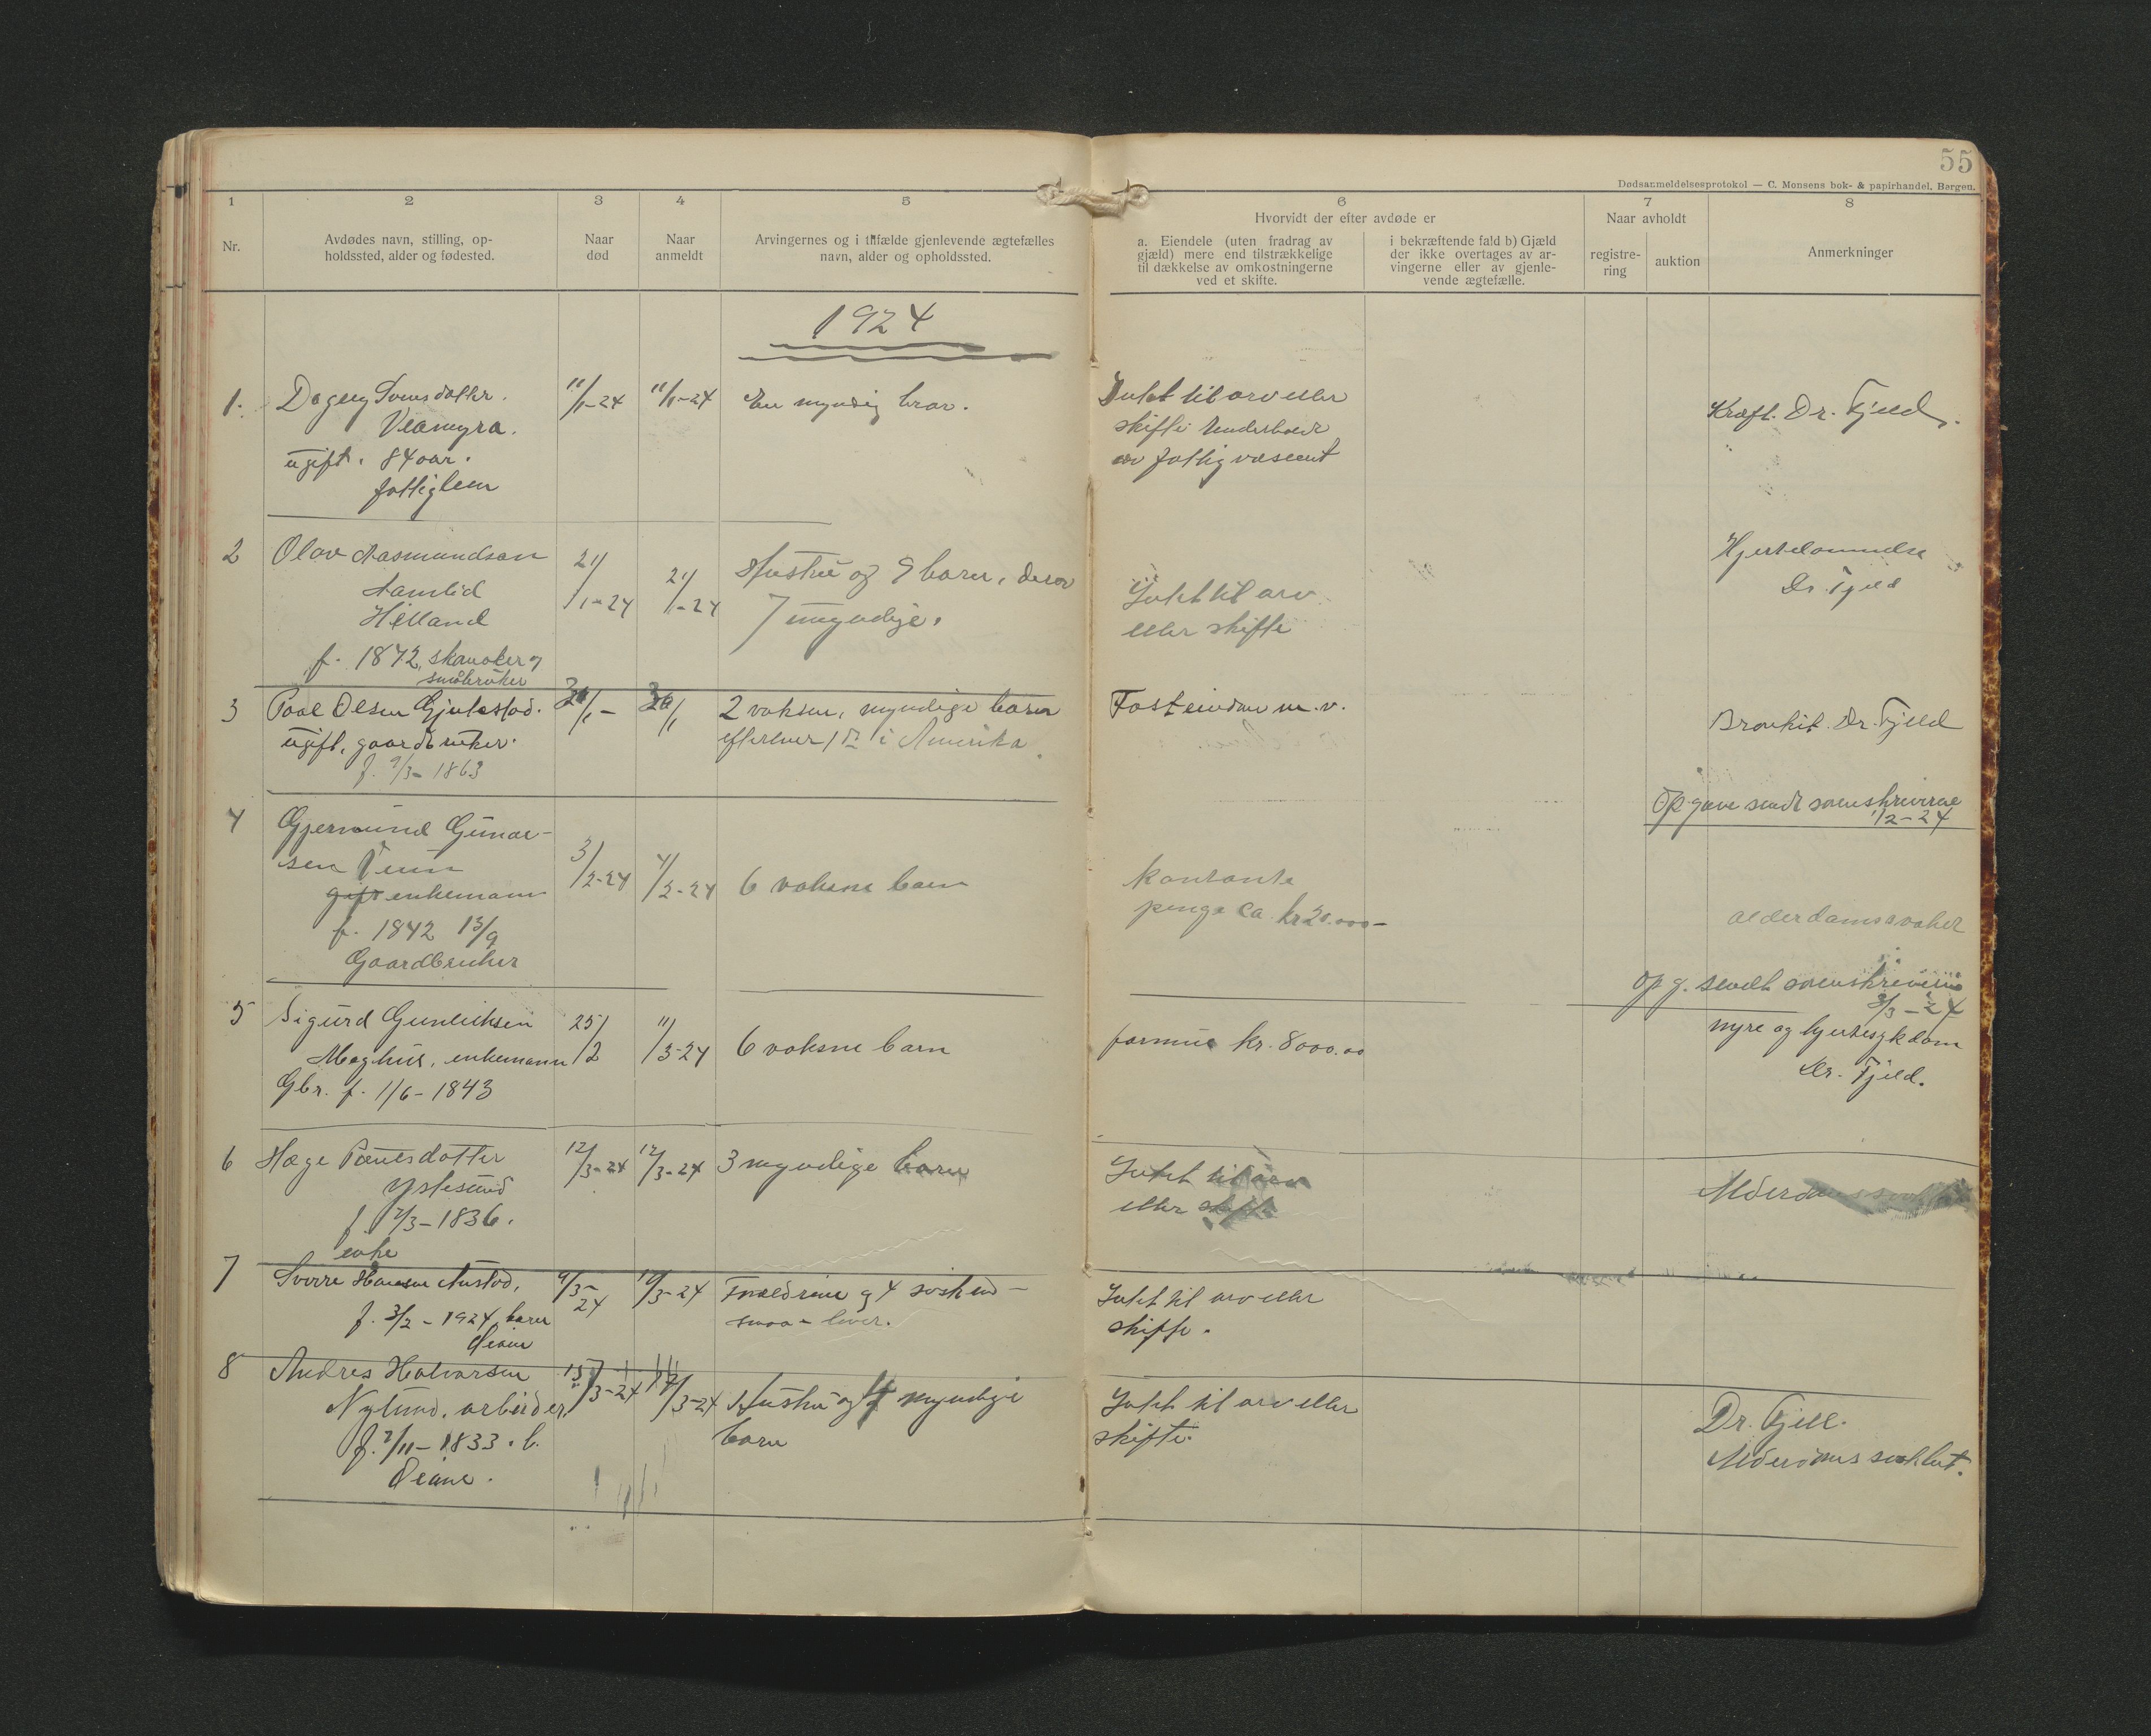 55
Dødsanmeldelsesprotokol — C. Monsens bok- & papirhandel, Bergen.
1 2 3 4 5 6 7 8
Nr.
Avdødes navn, stilling, op-
holdssted, alder og fødested.
Naar
død
Naar
anmeldt
Arvingernes og i tilfælde gjenlevende ægtefælles
navn, alder og opholdssted.
Hvorvidt der efter avdøde er
a. Eiendele (uten fradrag av
gjæld) mere end tilstrækkelige
til dækkelse av omkostningerne
ved et skifte.
i bekræftende fald b) Gjæld
der ikke overtages av ar-
vingerne eller av gjenle-
vende ægtefælle.
Naar avholdt
registre-
ring
auktion
Anmerkninger
1924
1.
Dagny
ugift. 84 aar.
fattiglem
11/1-24
11/1-24
En myndig bror.
Intet til arv eller
skifte underholdt
av fattigvæsenet
Kræft. Dr. Fjeld.
2
Olav Aasmundsen
Aamlid
Helland
f. 1872, skomaker og
småbruker
21/1-24
21/1-24
Hustru og 9 barn, derav
7 umyndige.
Intet til arv
eller skifte
Hjertelammelse
Dr. Fjeld
3
Paal Olsen Gjulestad.
ugift, gaardbruker.
f. 9/3-1863
2 voksne, myndige barn
efterlever, 1 i Amerika.
Fast eiendom m.v.
Bronkit. Dr. Fjeld
Opgave sendt sorenskriveren
1/2-24
4
Gjermund Gunar-
sen
gift enkemann
f. 1842 13/9
Gaardbruker
3/2-24
4/2-24
6 voksne barn
Kontante
penge ca. kr 20.000-
alderdomssvakhet
Opg. sendt sorenskriveren
3/3-24
5
Sigurd Gunleiksen
Moghus, enkemann
Gbr. f. 1/6-1843
25/2
11/3-24
6 voksne barn
formue kr. 8000.00
nyre og hjertesykdom
Dr. Fjeld.
6
Hæge Paulsdatter
Ystesund
f. 7/3-1836.
enke
12/3-24
12/3-24
3 myndige barn
Intet til arv
eller skifte
7
Sverre Hansen Austad,
f. 3/2-1924, barn
9/3-
24
Forældrene og 4 søskend-
smaa- lever.
Intet til arv eller
skifte.
8
Andres Halvorsen
Nylund, arbeider,
f. 7/11-1833. b.
15/3-24
17/3-24
Hustru og 4 myndige
barn
Intet til arv eller
skifte.
Dr. Fjeld.
Alderdoms svakhet.